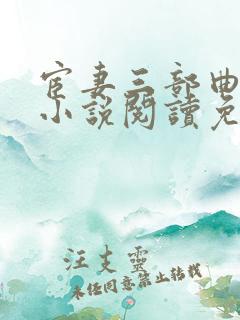 宦妻三部曲
小說閱讀免
汪支靈
未经同意禁止转载